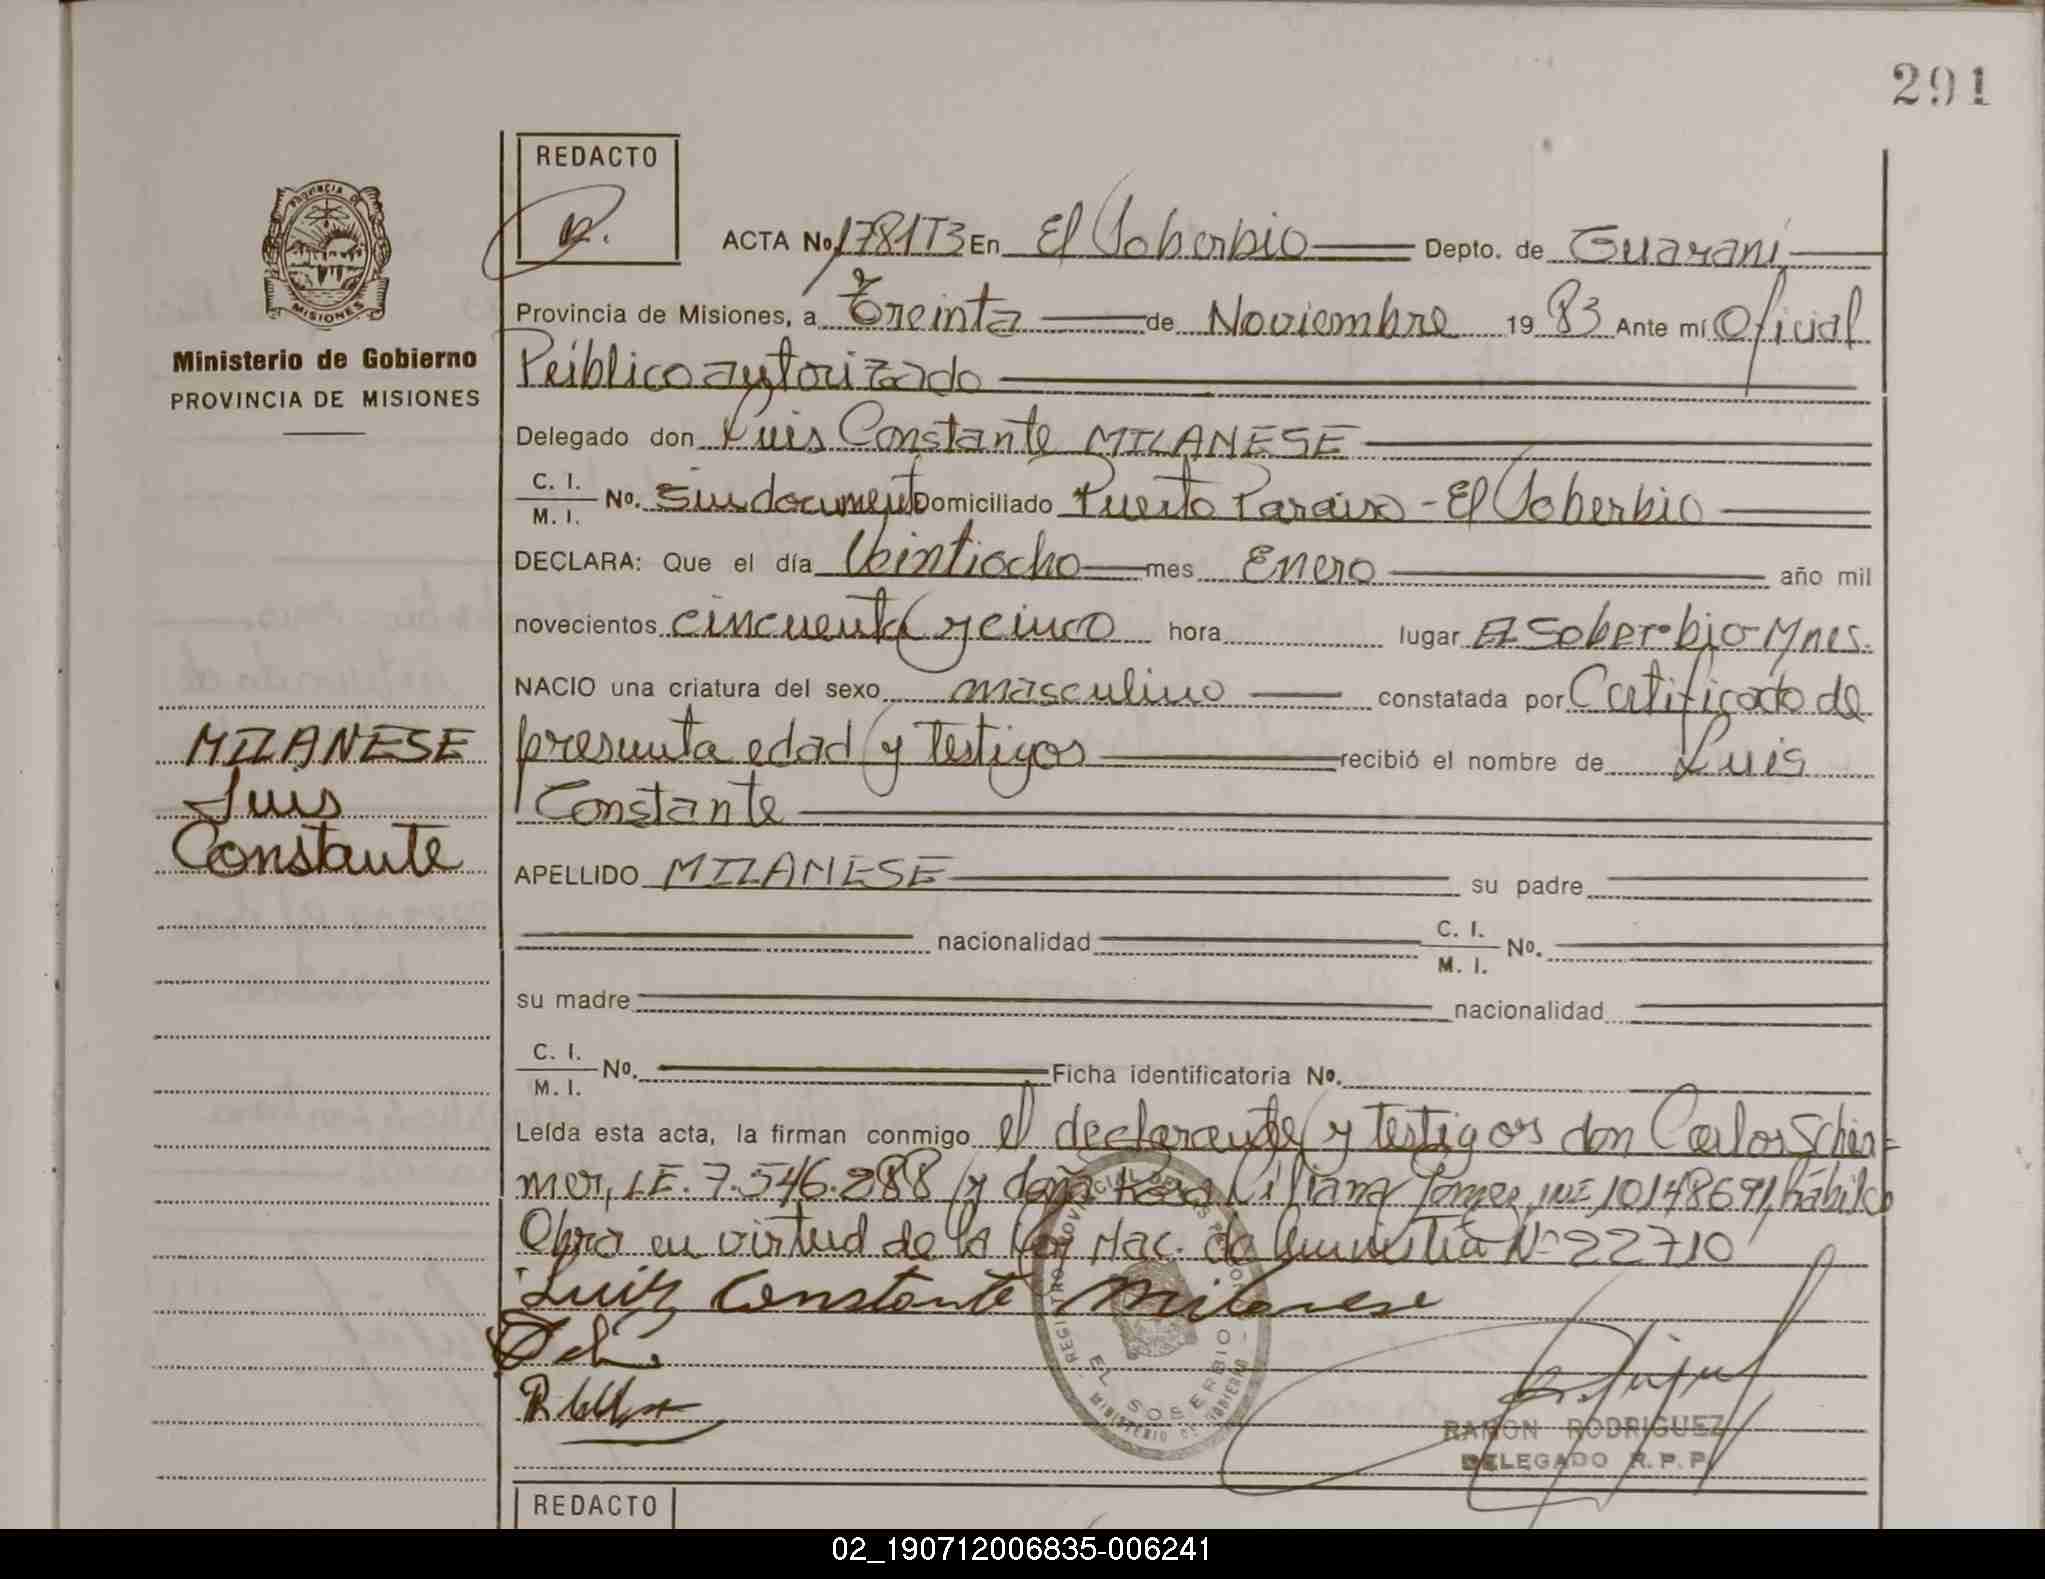 291
REDACTO
PROVINCIA DE
MISIONES
Ministerio de Gobierno
PROVINCIA DE MISIONES
ACTA No. 1781T3 En El Soberbio Depto. de Guaraní
Provincia de Misiones, a Treinta de Noviembre 1983 Ante mí Oficial
Público autorizado
Delegado don Luis Constante MILANESE
C. I.
M. I. No. Sin documento Domiciliado Puerto Paraiso - El Soberbio
DECLARA: Que el día Veintiocho mes Enero año mil
novecientos cincuenta y cinco hora lugar El Soberbio-Mnes.
NACIO una criatura del sexo masculino constatada por Certificado de
presunta edad y testigos recibió el nombre de Luis
Constante
MILANESE
Luis
Constante
APELLIDO MILANESE su padre
nacionalidad C. I.
M. I. No.
su madre nacionalidad
C. I.
M. I. No. Ficha identificatoria No.
Leída esta acta, la firman conmigo el declarante y testigos don Carlos
L.E. 7.546.288 y doña Liliana 10148691, hábiles
Obra en virtud de la Ley Nac. de Amnistia Nº 22710
Luis Constante Milanese
EL SOBERBIO
MINISTERIO DE GOBIERNO
RAMON RODRIGUEZ
DELEGADO R.P.P.
REDACTO
02_190712006835-006241